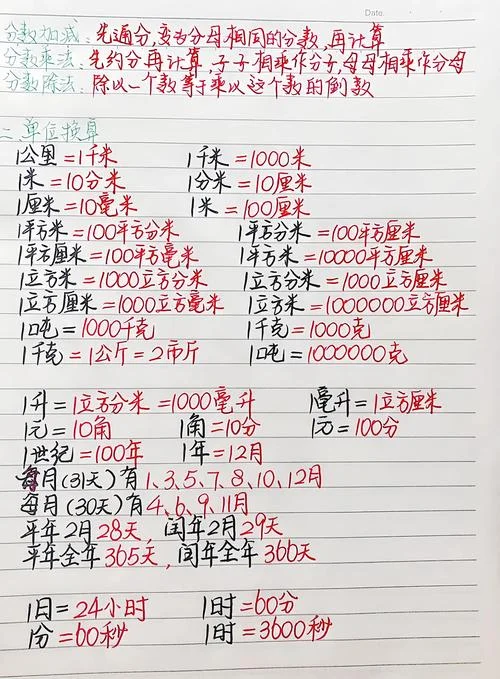 Date.
分数加减：先通分，变为分母相同的分数，再计算
分数乘法：先约分再计算，子子相乘作分子，母母相乘作分母
分数除法：除以一个数等于乘以这个数的倒数
二单位换算
1公里=1千米 1千米=1000米
1米=10分米 1分米=10厘米
1厘米=10毫米 1米=100厘米
1平方米=100平方分米 1平方分米=100平方厘米
1平方厘米=100平方毫米 1平方米=10000平方厘米
1立方米=1000立方分米 1立方分米=1000立方厘米
1立方厘米=1000立方毫米 1立方米=1000000立方厘米
1吨=1000千克 1千克=1000克
1千克=1公斤=2市斤 1吨=1000000克
1升=1立方分米=1000毫升 1毫升=1立方厘米
1元=10角 1角=10分 1元=100分
1世纪=100年 1年=12月
每月(31天)有1、3、5、7、8、10、12月
每月(30天)有4、6、9、11月
平年2月28天，闰年2月29天
平年全年365天，闰年全年366天
1日=24小时 1时=60分
1分=60秒 1时=3600秒